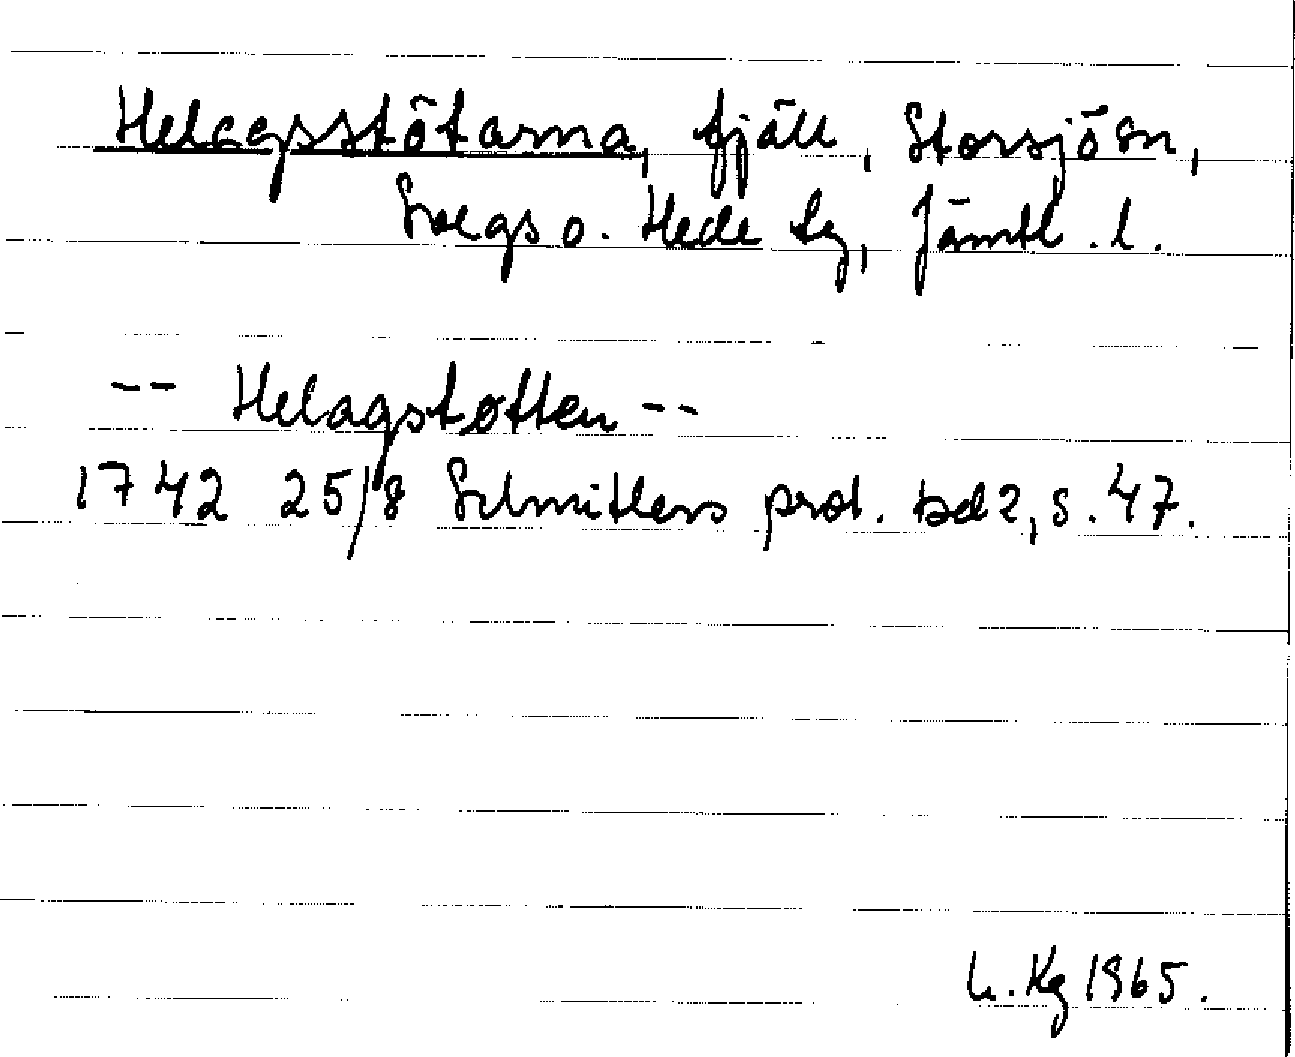 Helagsstötarna, fjäll, Storsjö sn,
Svegs o. Hede tg, Jämtl. l.
-- Helagstøtten --
1742 25/8 Schnitlers prot. bd 2, s. 47.
L. Kg 1965.